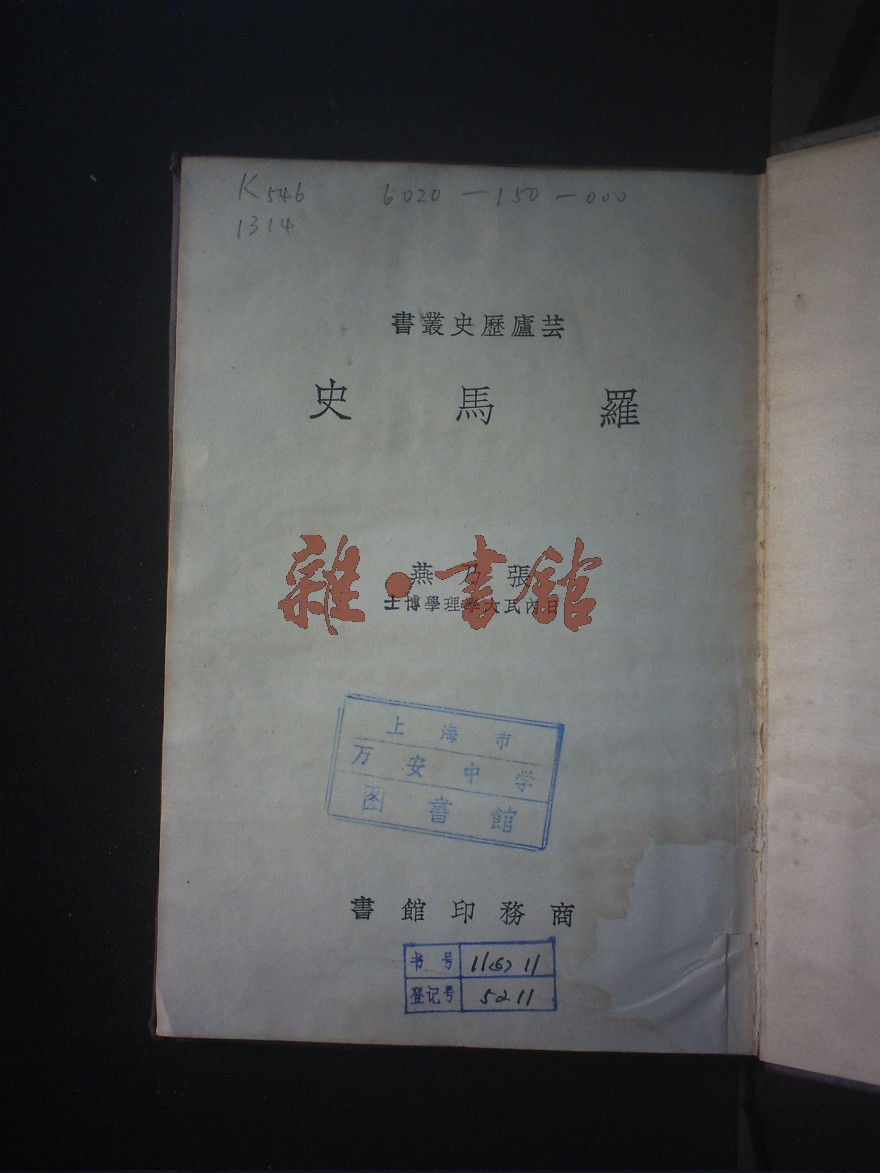 K546 6020-150-000
1314
芸廬歷史叢書
羅馬史
張乃燕
日內瓦大學理學博士
雜·書館
上海市
万安中学
图書館
商務印書館
书号 11(6)11
登记号 5211